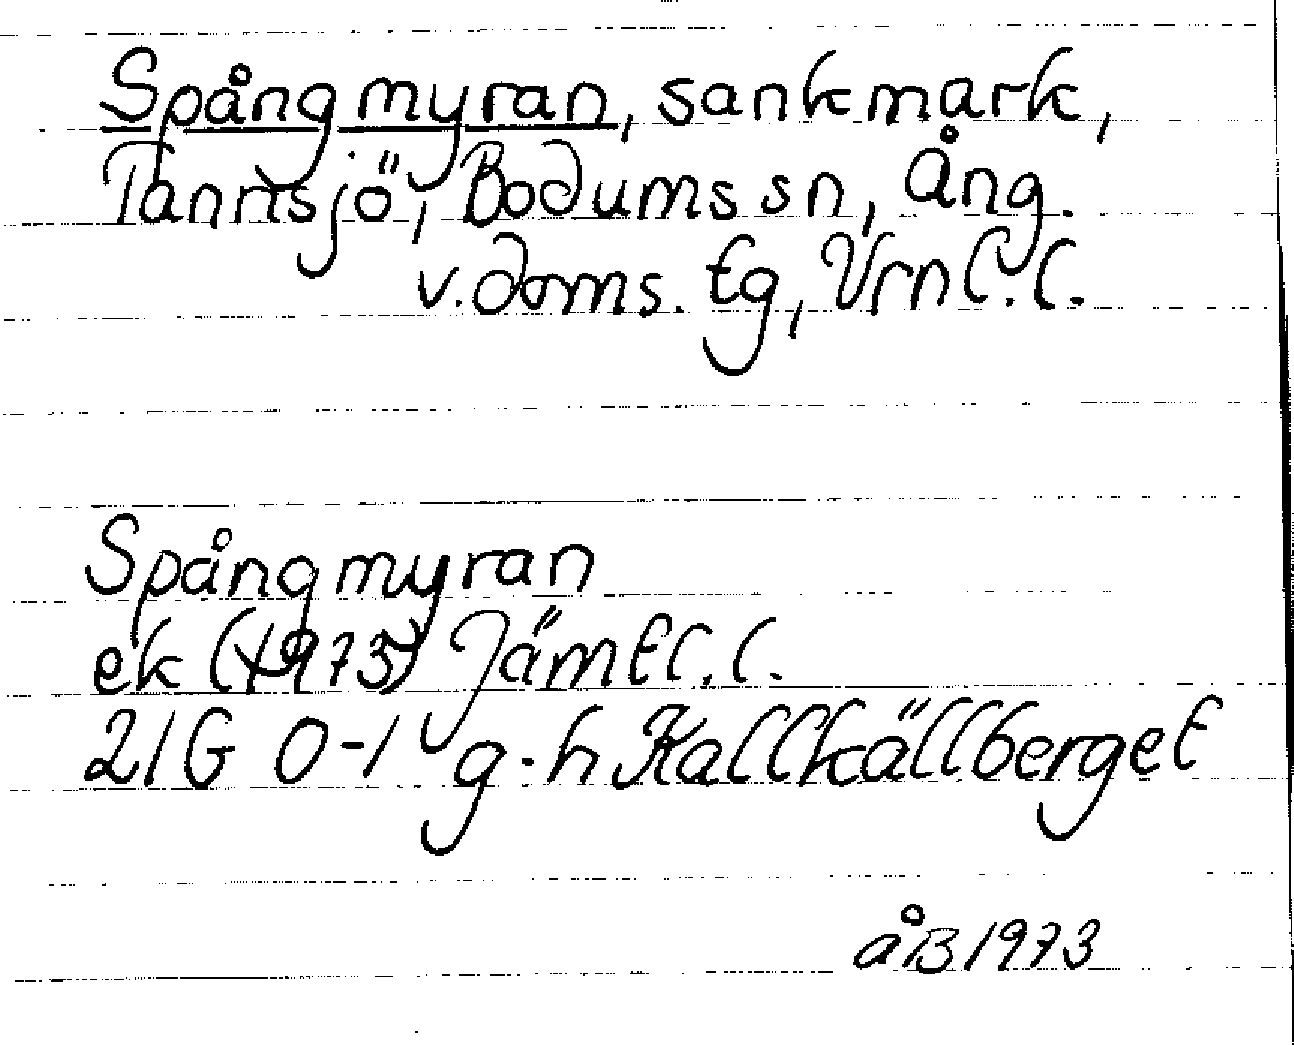 Spångmyran, sankmark,
Tannsjö, Bodums sn, Ång.
v. doms. tg, Vrnl. l.
Spångmyran
ek (1973) Jämtl. l.
21G 0-1 g-h Kallkällberget
åB 1973